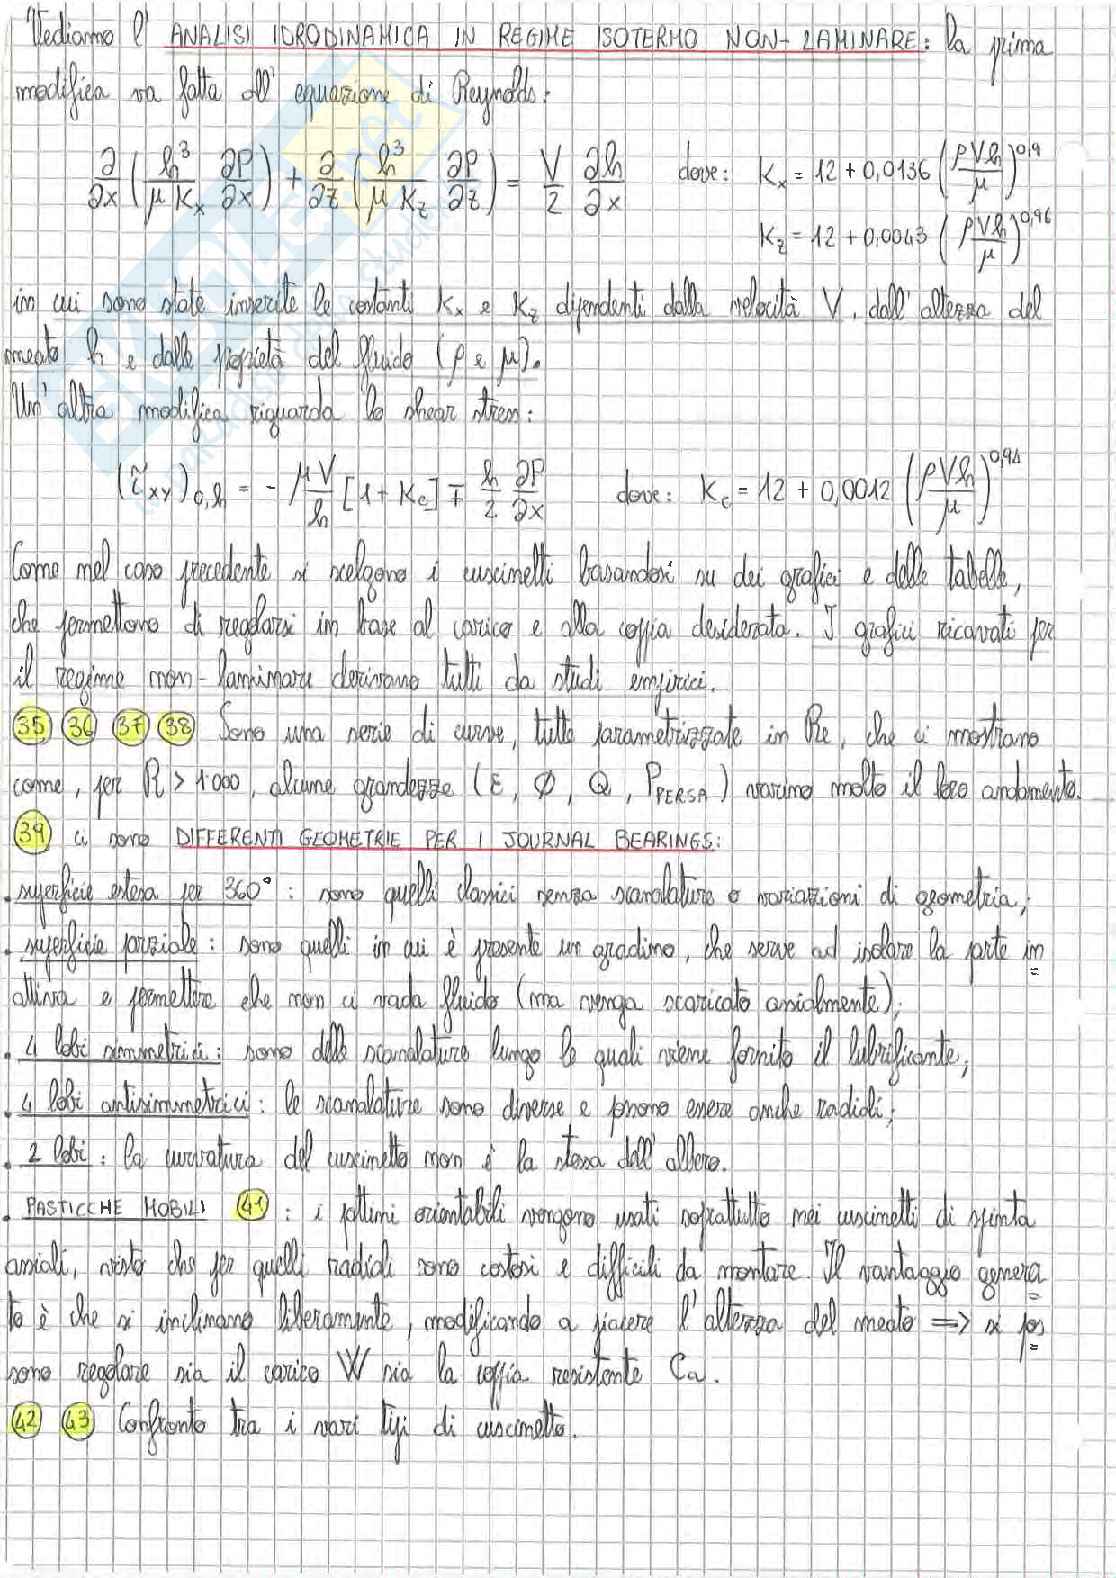 Vediamo l' ANALISI IDRODINAMICA IN REGIME ISOTERMO NON-LAMINARE: la prima
modifica va fatta all' equazione di Reynolds:
∂/∂x (h³/(μ Kx) ∂P/∂x) + ∂/∂z (h³/(μ Kz) ∂P/∂z) = V/2 ∂h/∂x dove: Kx = 12 + 0,0136 (ρVh/μ)^0,9
Kz = 12 + 0,0043 (ρVh/μ)^0,96
in cui sono state inserite le costanti Kx e Kz dipendenti dalla velocità V, dall' altezza del
meato h e dalle proprietà del fluido (ρ e μ).
Un' altra modifica riguarda lo shear stress:
(τxy)0,h = - μV/h [1 + Kc] ∓ h/2 ∂P/∂x dove: Kc = 12 + 0,0012 (ρVh/μ)^0,94
Come nel caso precedente si scelgono i cuscinetti basandosi su dei grafici e delle tabelle,
che permettono di regolarsi in base al carico e alla coppia desiderata. I grafici ricavati per
il regime non-lamminaru derivano tutti da studi empirici.
35 36 37 38 Sono una serie di curve, tutte parametrizzate in Re, che ci mostrano
come, per R > 1000, alcune grandezze (ε, Φ, Q, PPERSA) variino molto il loro andamento.
39 ci sono DIFFERENTI GEOMETRIE PER I JOURNAL BEARINGS:
. superficie estesa per 360° : sono quelli classici senza scanalature o variazioni di geometria;
. superficie parziale : sono quelli in cui è presente un gradino, che serve ad isolare la parte in
attiva e permettere che non ci vada fluido (ma venga scaricato assialmente);
. 4 lobi simmetrici : sono delle scanalature lungo le quali viene fornito il lubrificante;
. 4 lobi antisimmetrici : le scanalature sono diverse e possono essere anche radiali;
. 2 lobi : la curvatura del cuscinetto non è la stessa dell' albero.
. PASTICCHE MOBILI 41 : i pattini orientabili vengono usati soprattutto nei cuscinetti di spinta
assiali, visto che per quelli radiali sono costosi e difficili da montare. Il vantaggio genera
to è che si inclinano liberamente, modificando a piacere l' altezza del meato => si pos
sono regolare sia il carico W sia la coppia resistente Ca.
42 43 Confronto tra i vari tipi di cuscinetto.